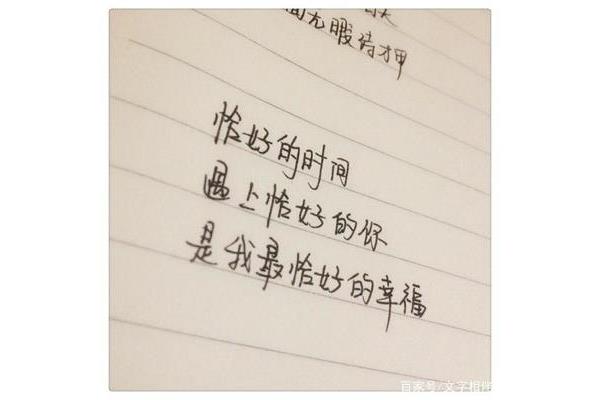 无暇诗押
恰好的时间
遇上恰好的你
是我最恰好的幸福
百家号/文字相伴